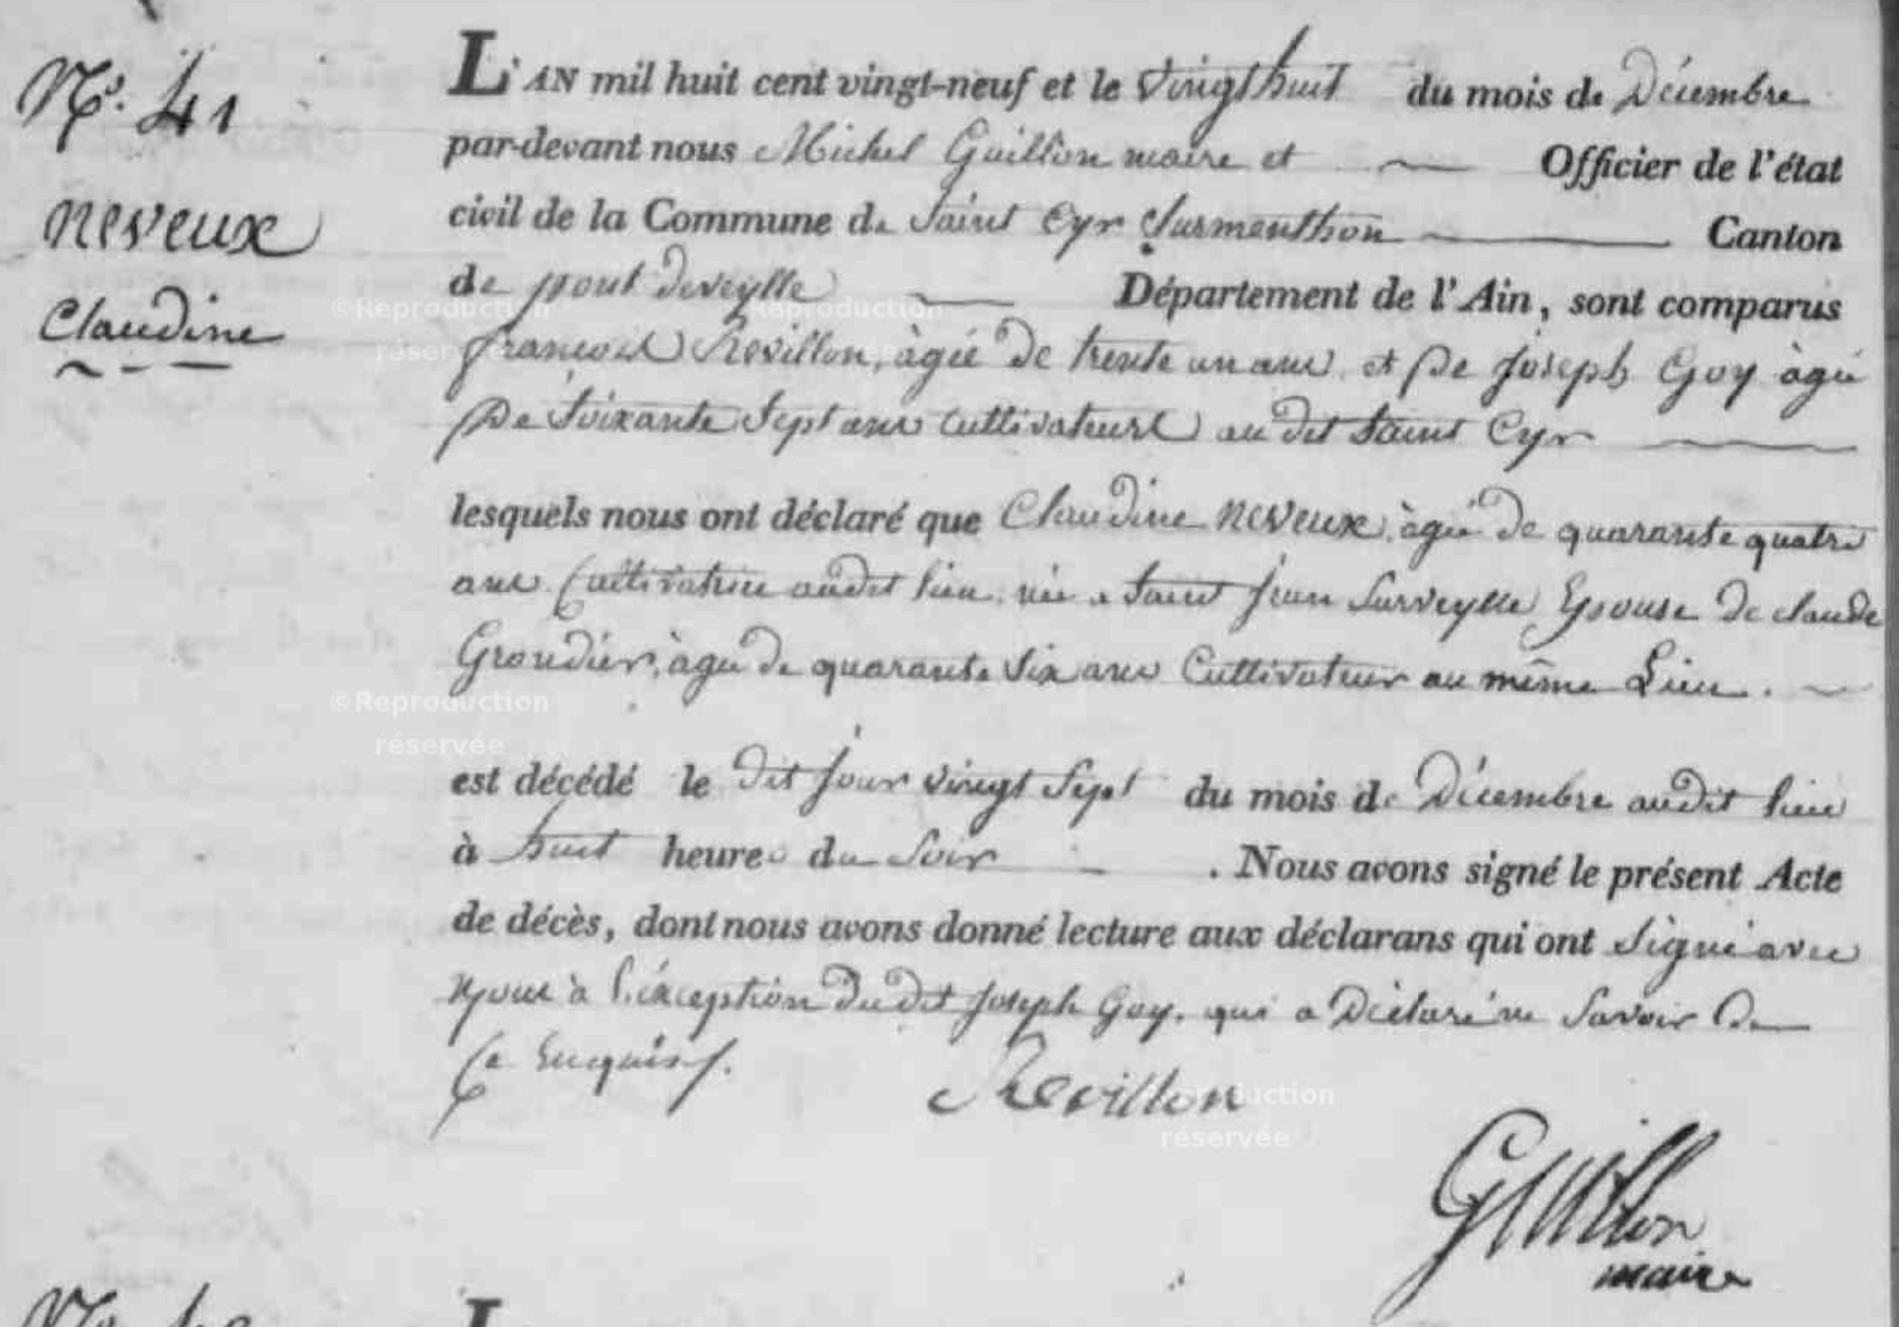 N.° 41
neveux
Claudine
L'AN mil huit cent vingt-neuf et le vingt huit du mois de Décembre
par-devant nous Michel Guillon maire et Officier de l'état
civil de la Commune de Saint Cyr Surmenthon Canton
de pont deveylle Département de l'Ain, sont comparus
françois Revillon, àgé de trente un ans, et De Joseph Goy àgé
De Soixante Sept ans Cultivateurs au dit Saint Cyr
lesquels nous ont déclaré que Claudine neveux, àgée de quarante quatre
ans Cultivatrice audit lieu, née a Saint Jean Surveylle Epouse De claude
Grondier, àgé de quarante Six ans Cultivateur au même Lieu.
est décédé le dit jour vingt Sept du mois de Décembre audit lieu
à huit heures du Soir . Nous avons signé le présent Acte
de décès, dont nous avons donné lecture aux déclarans qui ont Signé avec
Nous à l'éxception Du dit Joseph Goy. qui a Déclaré ne Savoir De
Ce Enquis.
Revillon
Guillon
maire
©Reproduction
réservée
Reproduction
©Reproduction
réservée
réservée
N.°
L